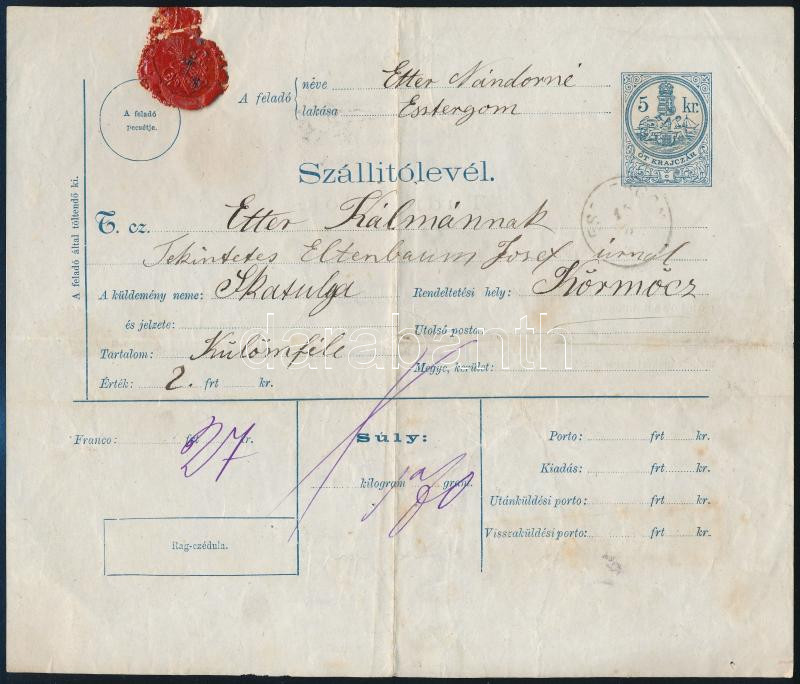 A feladó neve Etter Nándorné
lakása Esztergom
5 kr.
ÖT KRAJCZÁR
A feladó
pecsétje.
Szállitólevél.
A feladó által töltendő ki.
T. cz. Etter Kálmánnak
Tekintetes Eltenbaum Josef úrnál
A küldemény neme: Skatulya Rendeltetési hely: Körmöcz
és jelzete: Utolsó posta:
darabanth
Tartalom: Külömféle Megye, kerület:
Érték: 2. frt kr.
Franco: 27 frt kr.
Súly:
kilogram gram.
Porto: frt kr.
Kiadás: frt kr.
Utánküldési porto: frt kr.
Visszaküldési porto: frt kr.
Rag-czédula.